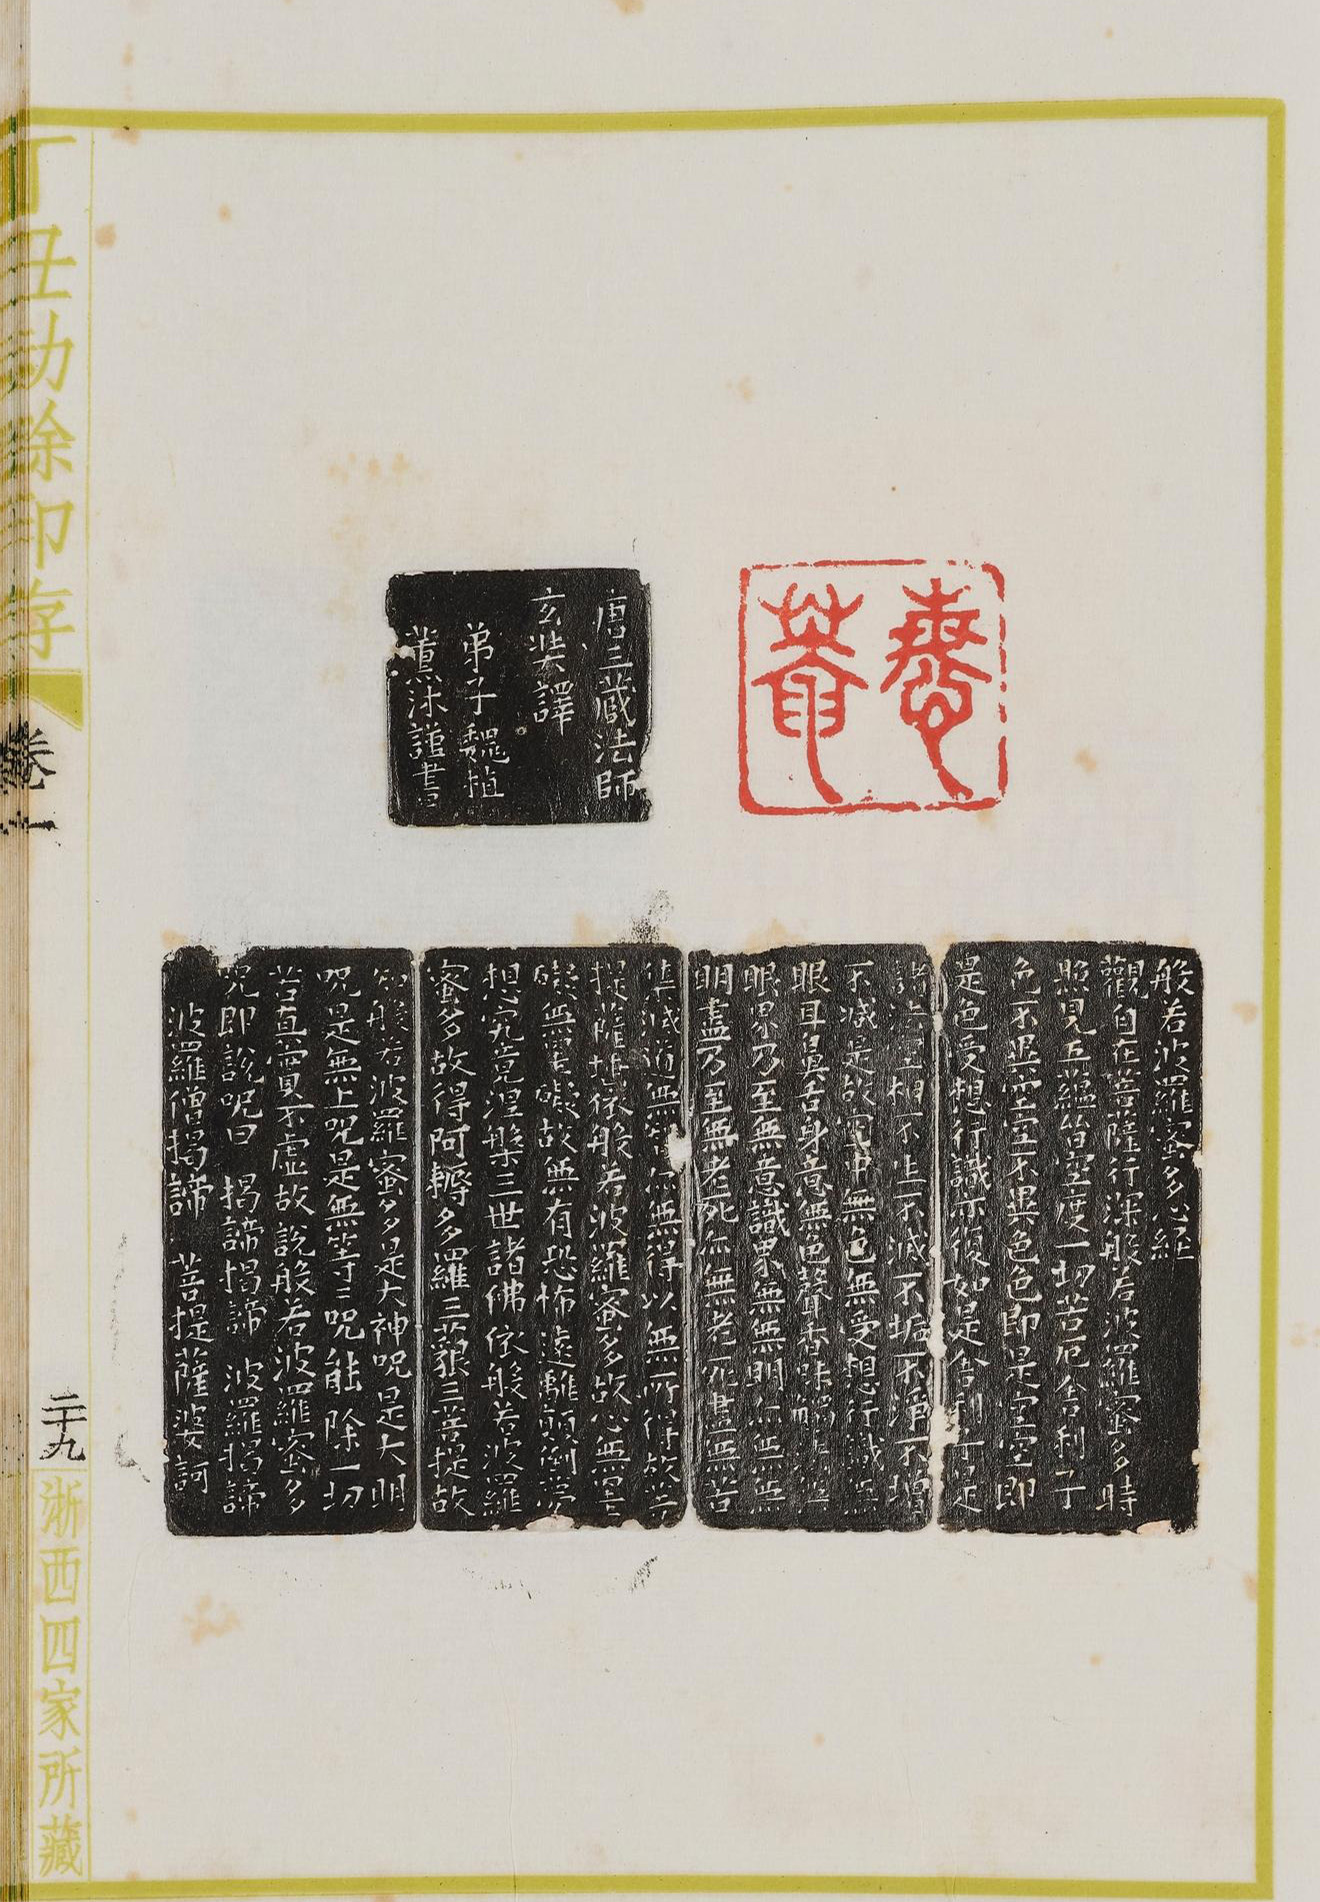 唐三藏法師
玄奘譯
弟子魏植
薰沐謹書
般若波羅蜜多心經
觀自在菩薩行深般若波羅蜜多時
照見五蘊皆空度一切苦厄舍利子
色不異空空不異色色即是空空即
是色受想行識亦復如是舍利子是
諸法空相不生不滅不垢不淨不增
不減是故空中無色無受想行識無
眼耳鼻舌身意無色聲香味觸法無
眼界乃至無意識界無無明亦無無
明盡乃至無老死亦無老死盡無苦
集滅道無智亦無得以無所得故菩
提薩埵依般若波羅蜜多故心無罣
礙無罣礙故無有恐怖遠離顛倒夢
想究竟涅槃三世諸佛依般若波羅
蜜多故得阿耨多羅三藐三菩提故
知般若波羅蜜多是大神呪是大明
呪是無上呪是無等二呪能除一切
苦真實不虛故說般若波羅蜜多
呪即說呪曰 揭諦揭諦 波羅揭諦
波羅僧揭諦 菩提薩婆訶
丁丑劫餘印存
卷一
二十九
浙西四家所藏